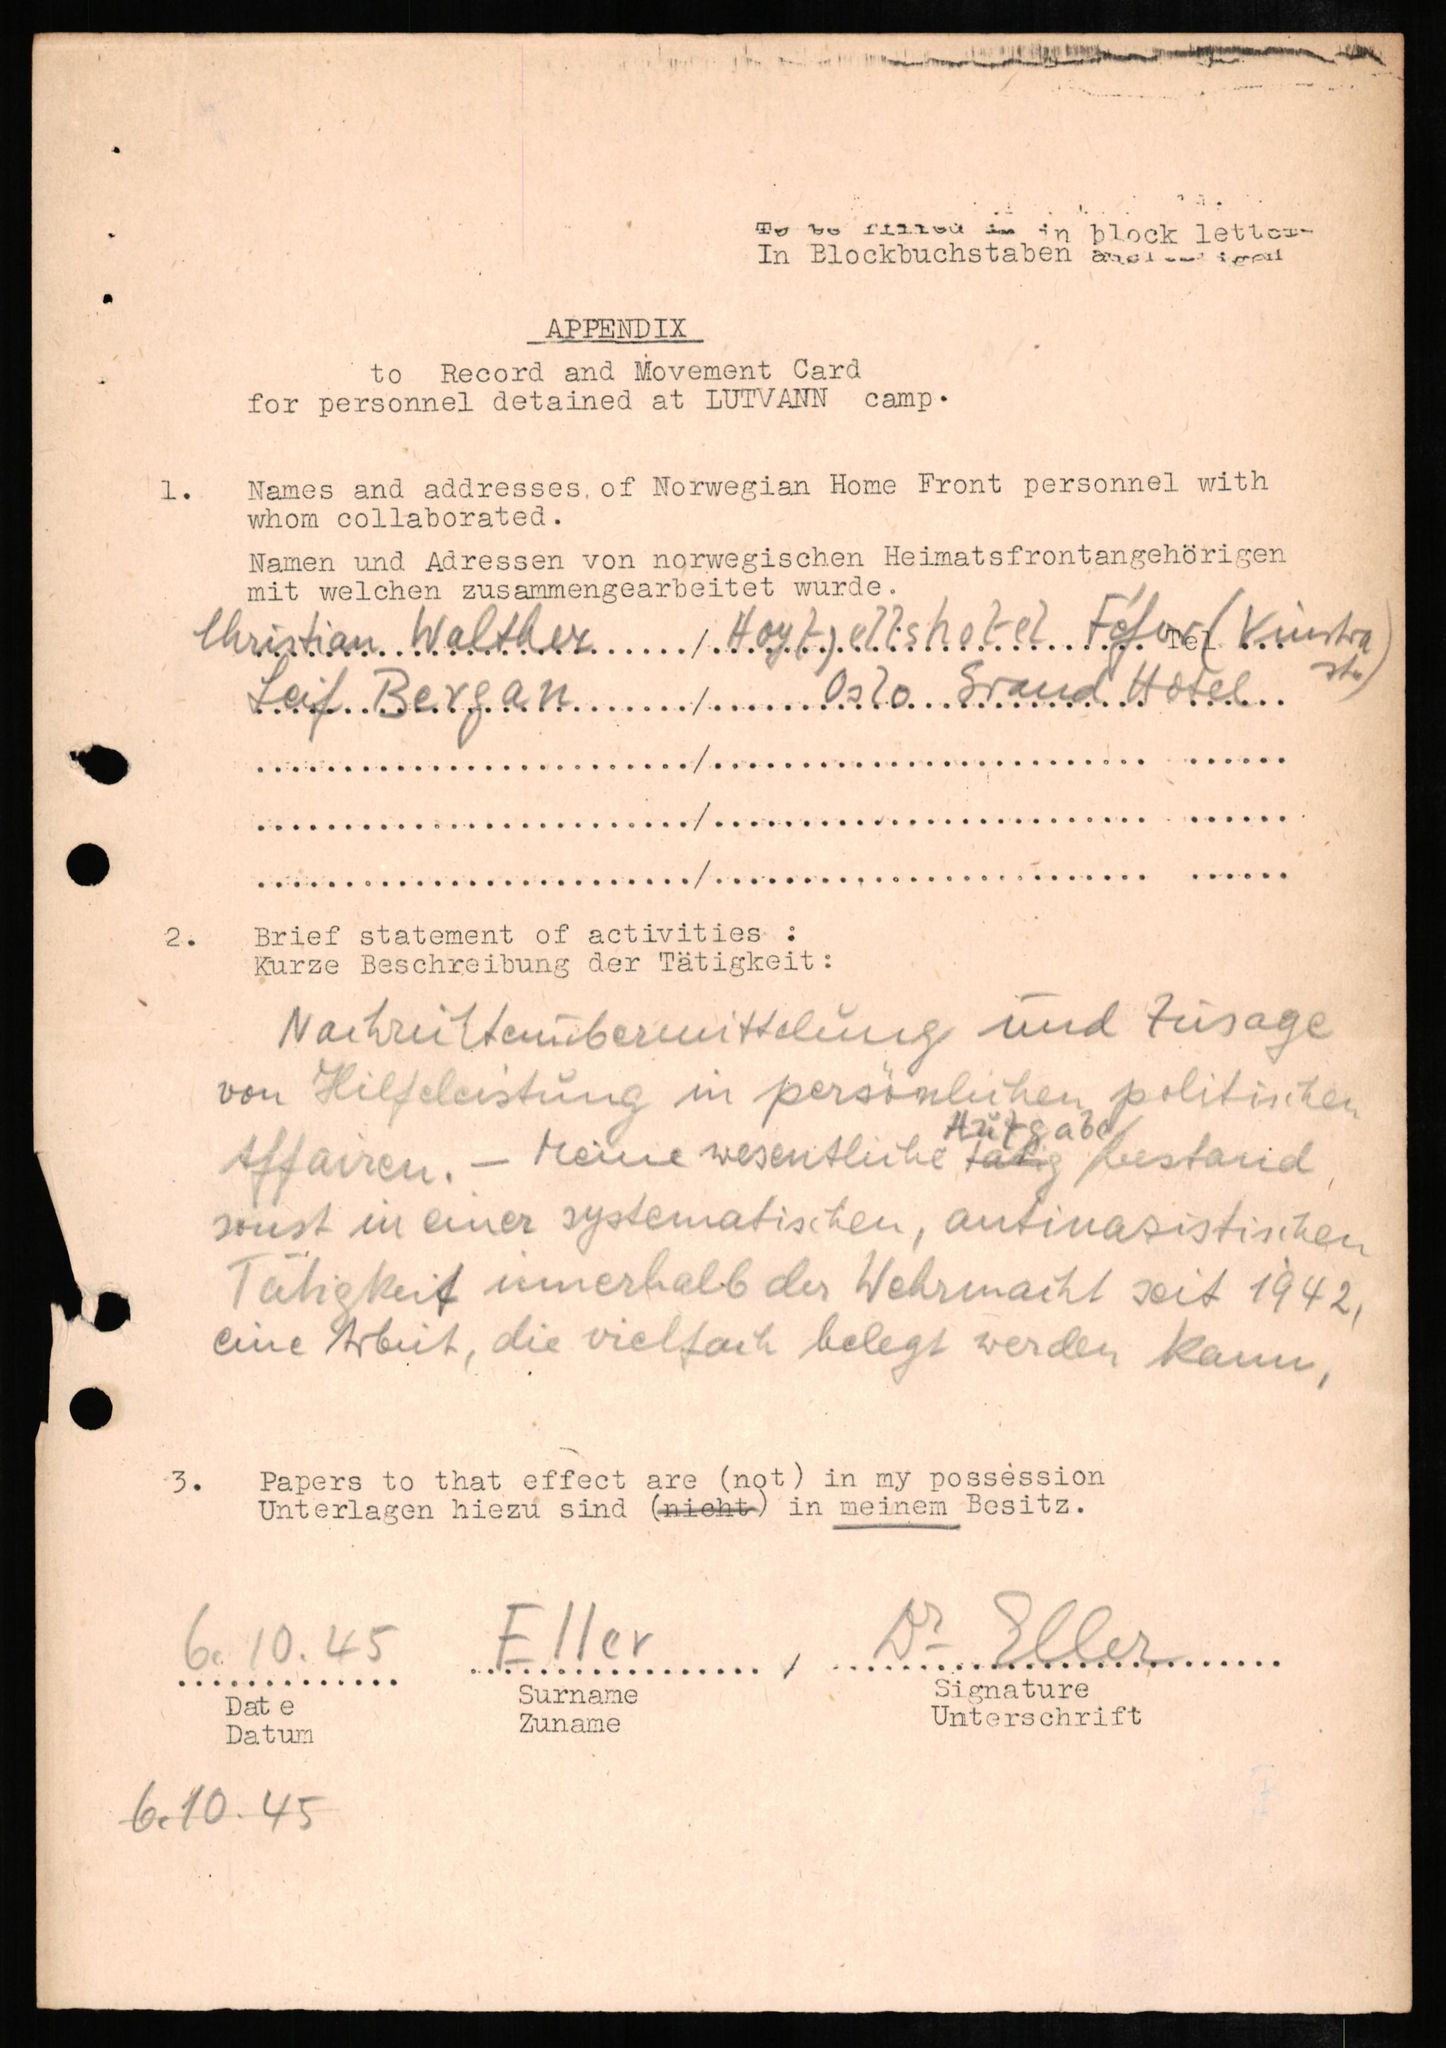 To be filled in in block letter
In Blockbuchstaben
APPENDIX
to Record and Movement Card
for personnel detained at LUTVANN camp.
1. Names and addresses of Norwegian Home Front personnel with
whom collaborated.
Namen und Adressen von norwegischen Heimatsfrontangehörigen
mit welchen zusammengearbeitet wurde.
Christian Walther / Hoyfjellshotel Féfor Tel (Vinstra
st.)
Leif Bergan / Oslo Grand Hotel
/
/
/
2. Brief statement of activities :
Kurze Beschreibung der Tätigkeit:
Nachrichtenübermittelung und Zusage
von Hilfeleistung in persönlichen politischen
Affairen. — Meine wesentliche tätig Aufgabe bestand
sonst in einer systematischen, antinazistischen
Tätigkeit innerhalb der Wehrmacht seit 1942,
eine Arbeit, die vielfach belegt werden kann,
3. Papers to that effect are (not) in my possession
Unterlagen hiezu sind (nicht) in meinem Besitz.
6.10.45 Eller , Dr Eller
Date Surname Signature
Datum Zuname Unterschrift
6.10.45